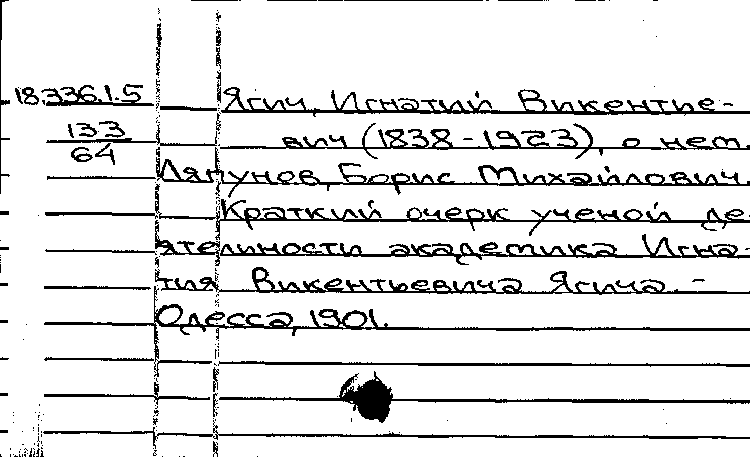 18.336.1.5
133
64
Ягич, Игнатий Викентие-
вич (1838-1923), о нем.
Ляпунов, Борис Михайлович.
Краткий очерк ученой де-
ятельности академика Игна-
тия Викентьевича Ягича. -
Одесса, 1901.